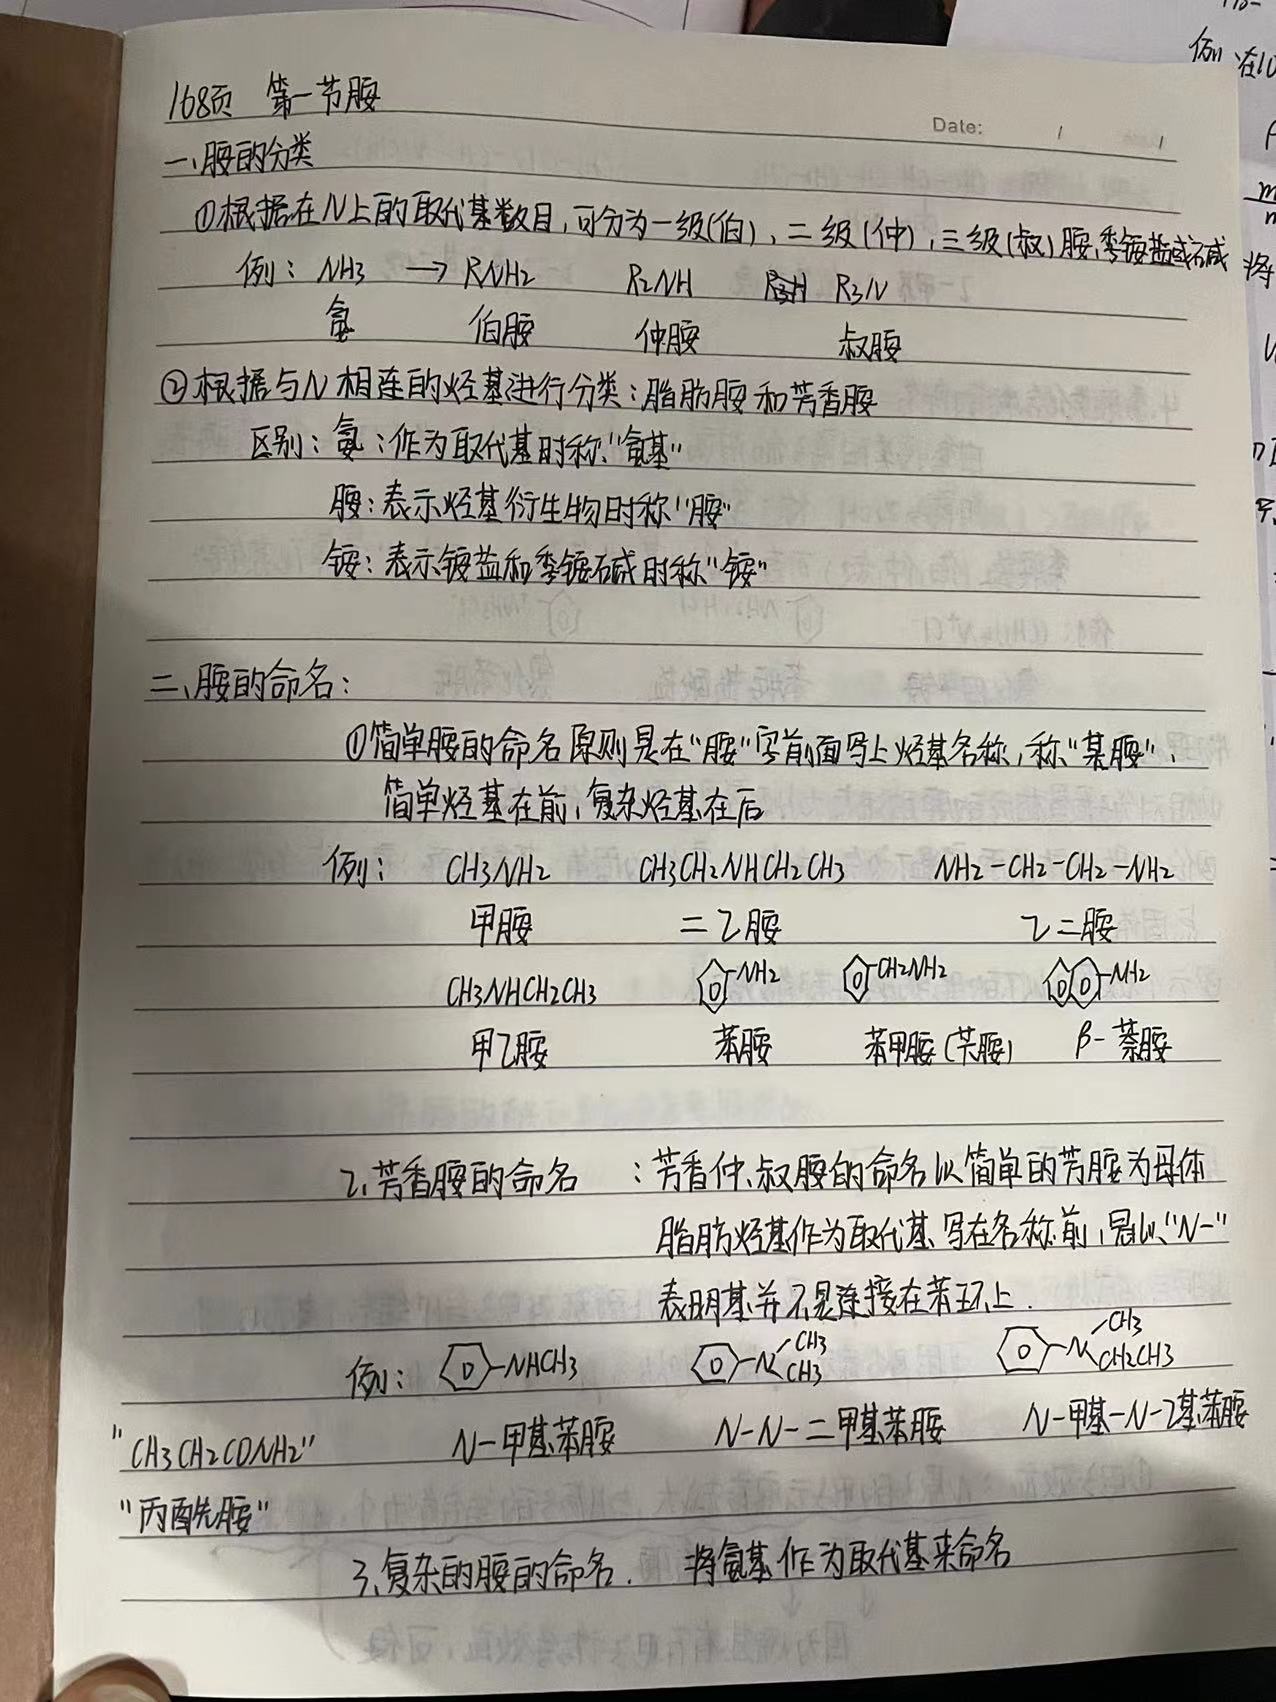 168页 第一节胺
Date: / /
一、胺的分类
①根据在N上的取代基数目,可分为一级(伯)、二级(仲),三级(叔)胺,季铵盐或碱
例: NH3 → RNH2 R2NH R3N
氨 伯胺 仲胺 叔胺
②根据与N相连的烃基进行分类:脂肪胺和芳香胺
区别:氨:作为取代基时称“氨基”
胺:表示烃基衍生物时称“胺”
铵:表示铵盐和季铵碱时称“铵”
二、胺的命名:
①简单胺的命名原则是在“胺”字前面写上烃基名称,称“某胺”,
简单烃基在前,复杂烃基在后
例: CH3NH2 CH3CH2NHCH2CH3 NH2-CH2-CH2-NH2
甲胺 二乙胺 乙二胺
CH3NHCH2CH3 -NH2 -CH2NH2 -NH2
甲乙胺 苯胺 苯甲胺(苄胺) β-萘胺
2、芳香胺的命名 :芳香仲、叔胺的命名以简单的芳胺为母体
脂肪烃基作为取代基写在名称前,冠以“N-”
表明基并不是连接在苯环上.
例: -NHCH3 -N CH3 CH3 -N CH3 CH2CH3
N-甲基苯胺 N-N-二甲基苯胺 N-甲基-N-乙基苯胺
“CH3CH2CONH2”
“丙酰胺”
3、复杂的胺的命名. 将氨基作为取代基来命名